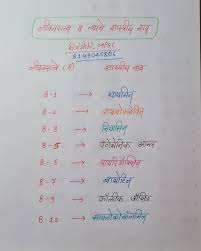 जीवनसत्व व त्याचे शास्त्रीय नाव
जीवनसत्वे (B) शास्त्रीय नाव
B-1 → थायमिन
B-2 → रायबोफ्लेविन
B-3 → नियासिन
B-5 → पेंटोथेनिक आम्ल
B-6 → पायरीडॉक्सिन
B-7 → बायोटिन
B-9 → फॉलीक ॲसिड
B-12 → सायनोकोबॅलमिन